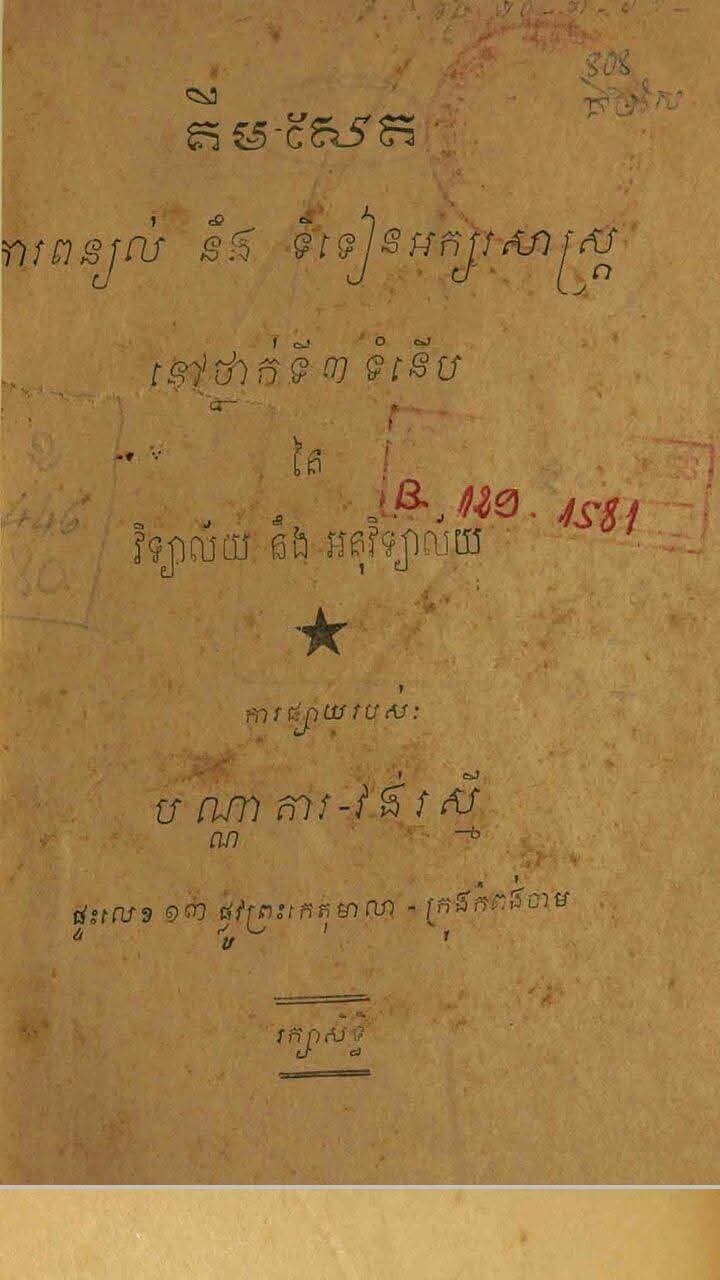 808
គឹម-សែត
ការពន្យល់ នឹង ទំទៀនអក្សរសាស្ត្រ
នៅថ្នាក់ទី ៣ ទំនើប
នៃ
B. 129. 1581
446
វិទ្យាល័យ នឹង អនុវិទ្យាល័យ
ការផ្សាយរបស់:
បណ្ណាគារ-វង់រស្មី
ផ្ទះលេខ ១៣ ផ្លូវព្រះកេតុមាលា - ក្រុងកំពង់ចាម
រក្សាសិទ្ធិ